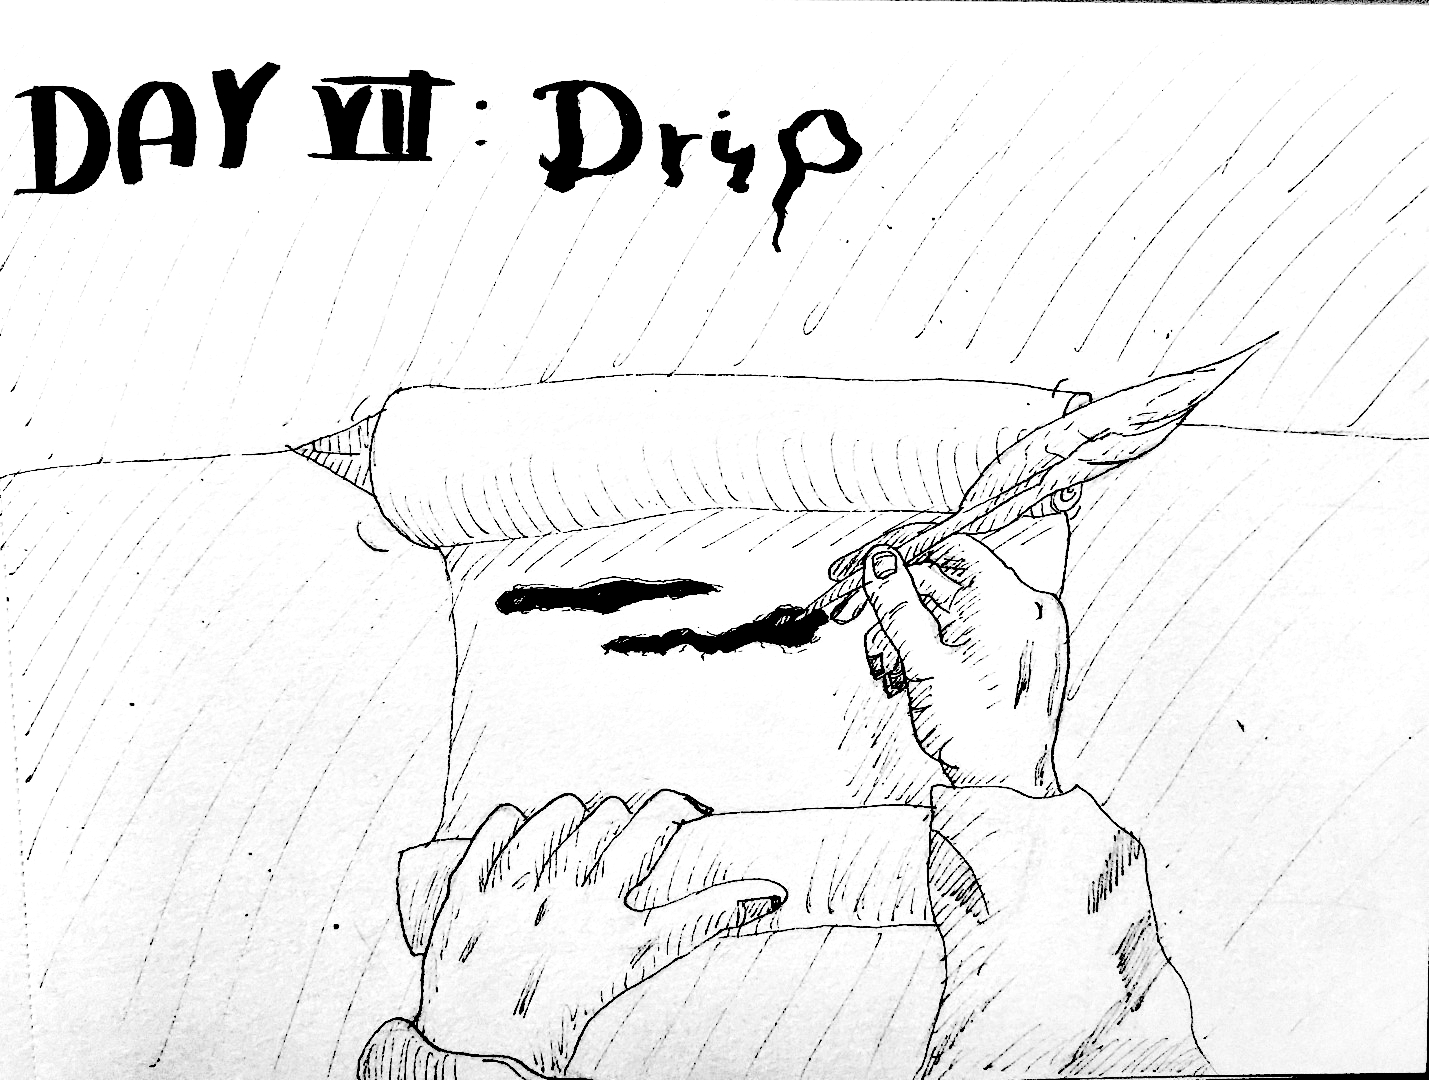 DAY VII: Drip